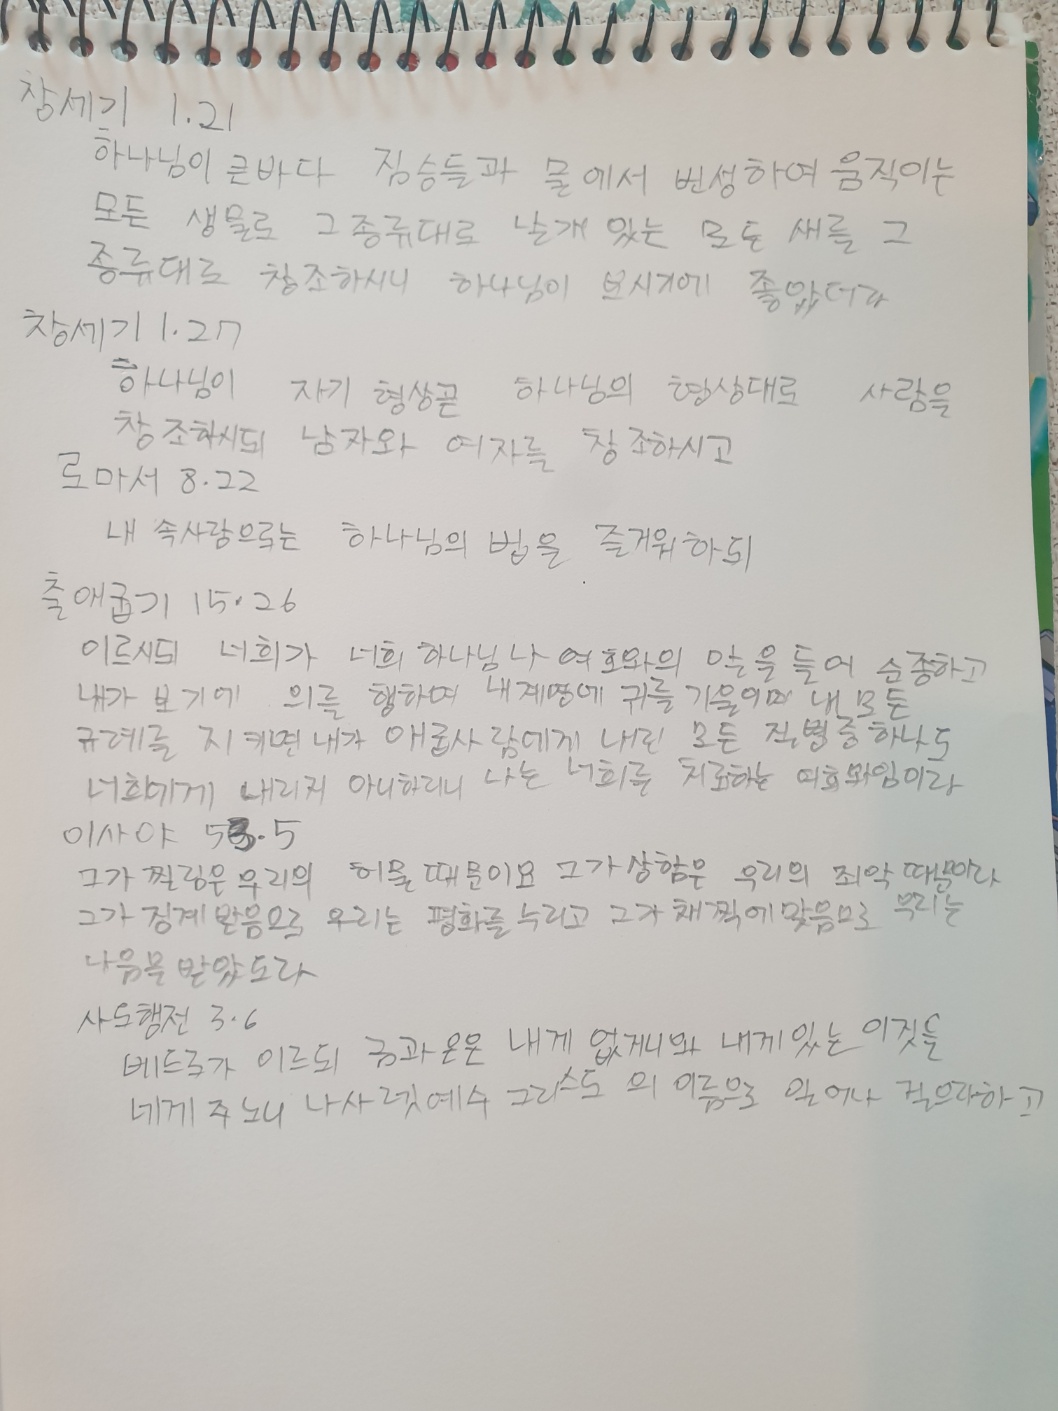 창세기 1.21
하나님이 큰바다 짐승들과 물에서 번성하여 움직이는
모든 생물로 그 종류대로 날개 있는 모든 새를 그
종류대로 창조하시니 하나님이 보시기에 좋았더라
창세기 1.27
하나님이 자기 형상곧 하나님의 형상대로 사람을
창조하시되 남자와 여자를 창조하시고
로마서 8.22
내 속사람으로는 하나님의 법을 즐거워하되
출애굽기 15.26
이르시되 너희가 너희 하나님 나 여호와의 말을 들어 순종하고
내가 보기에 의를 행하며 내계명에 귀를 기울이며 내 모든
규례를 지키면 내가 애굽사람에게 내린 모든 질병중 하나도
너희에게 내리지 아니하리니 나는 너희를 치료하는 여호와임이라
이사야 53.5
그가 찔림은 우리의 허물 때문이요 그가 상함은 우리의 죄악 때문이라
그가 징계 받음으로 우리는 평화를 누리고 그가 채찍에 맞음으로 우리는
나음을 받았도라
사도행전 3.6
베드로가 이르되 금과 은은 내게 없거니와 내게 있는 이것을
네게 주노니 나사렛예수 그리스도 의 이름으로 일어나 걸으라하고